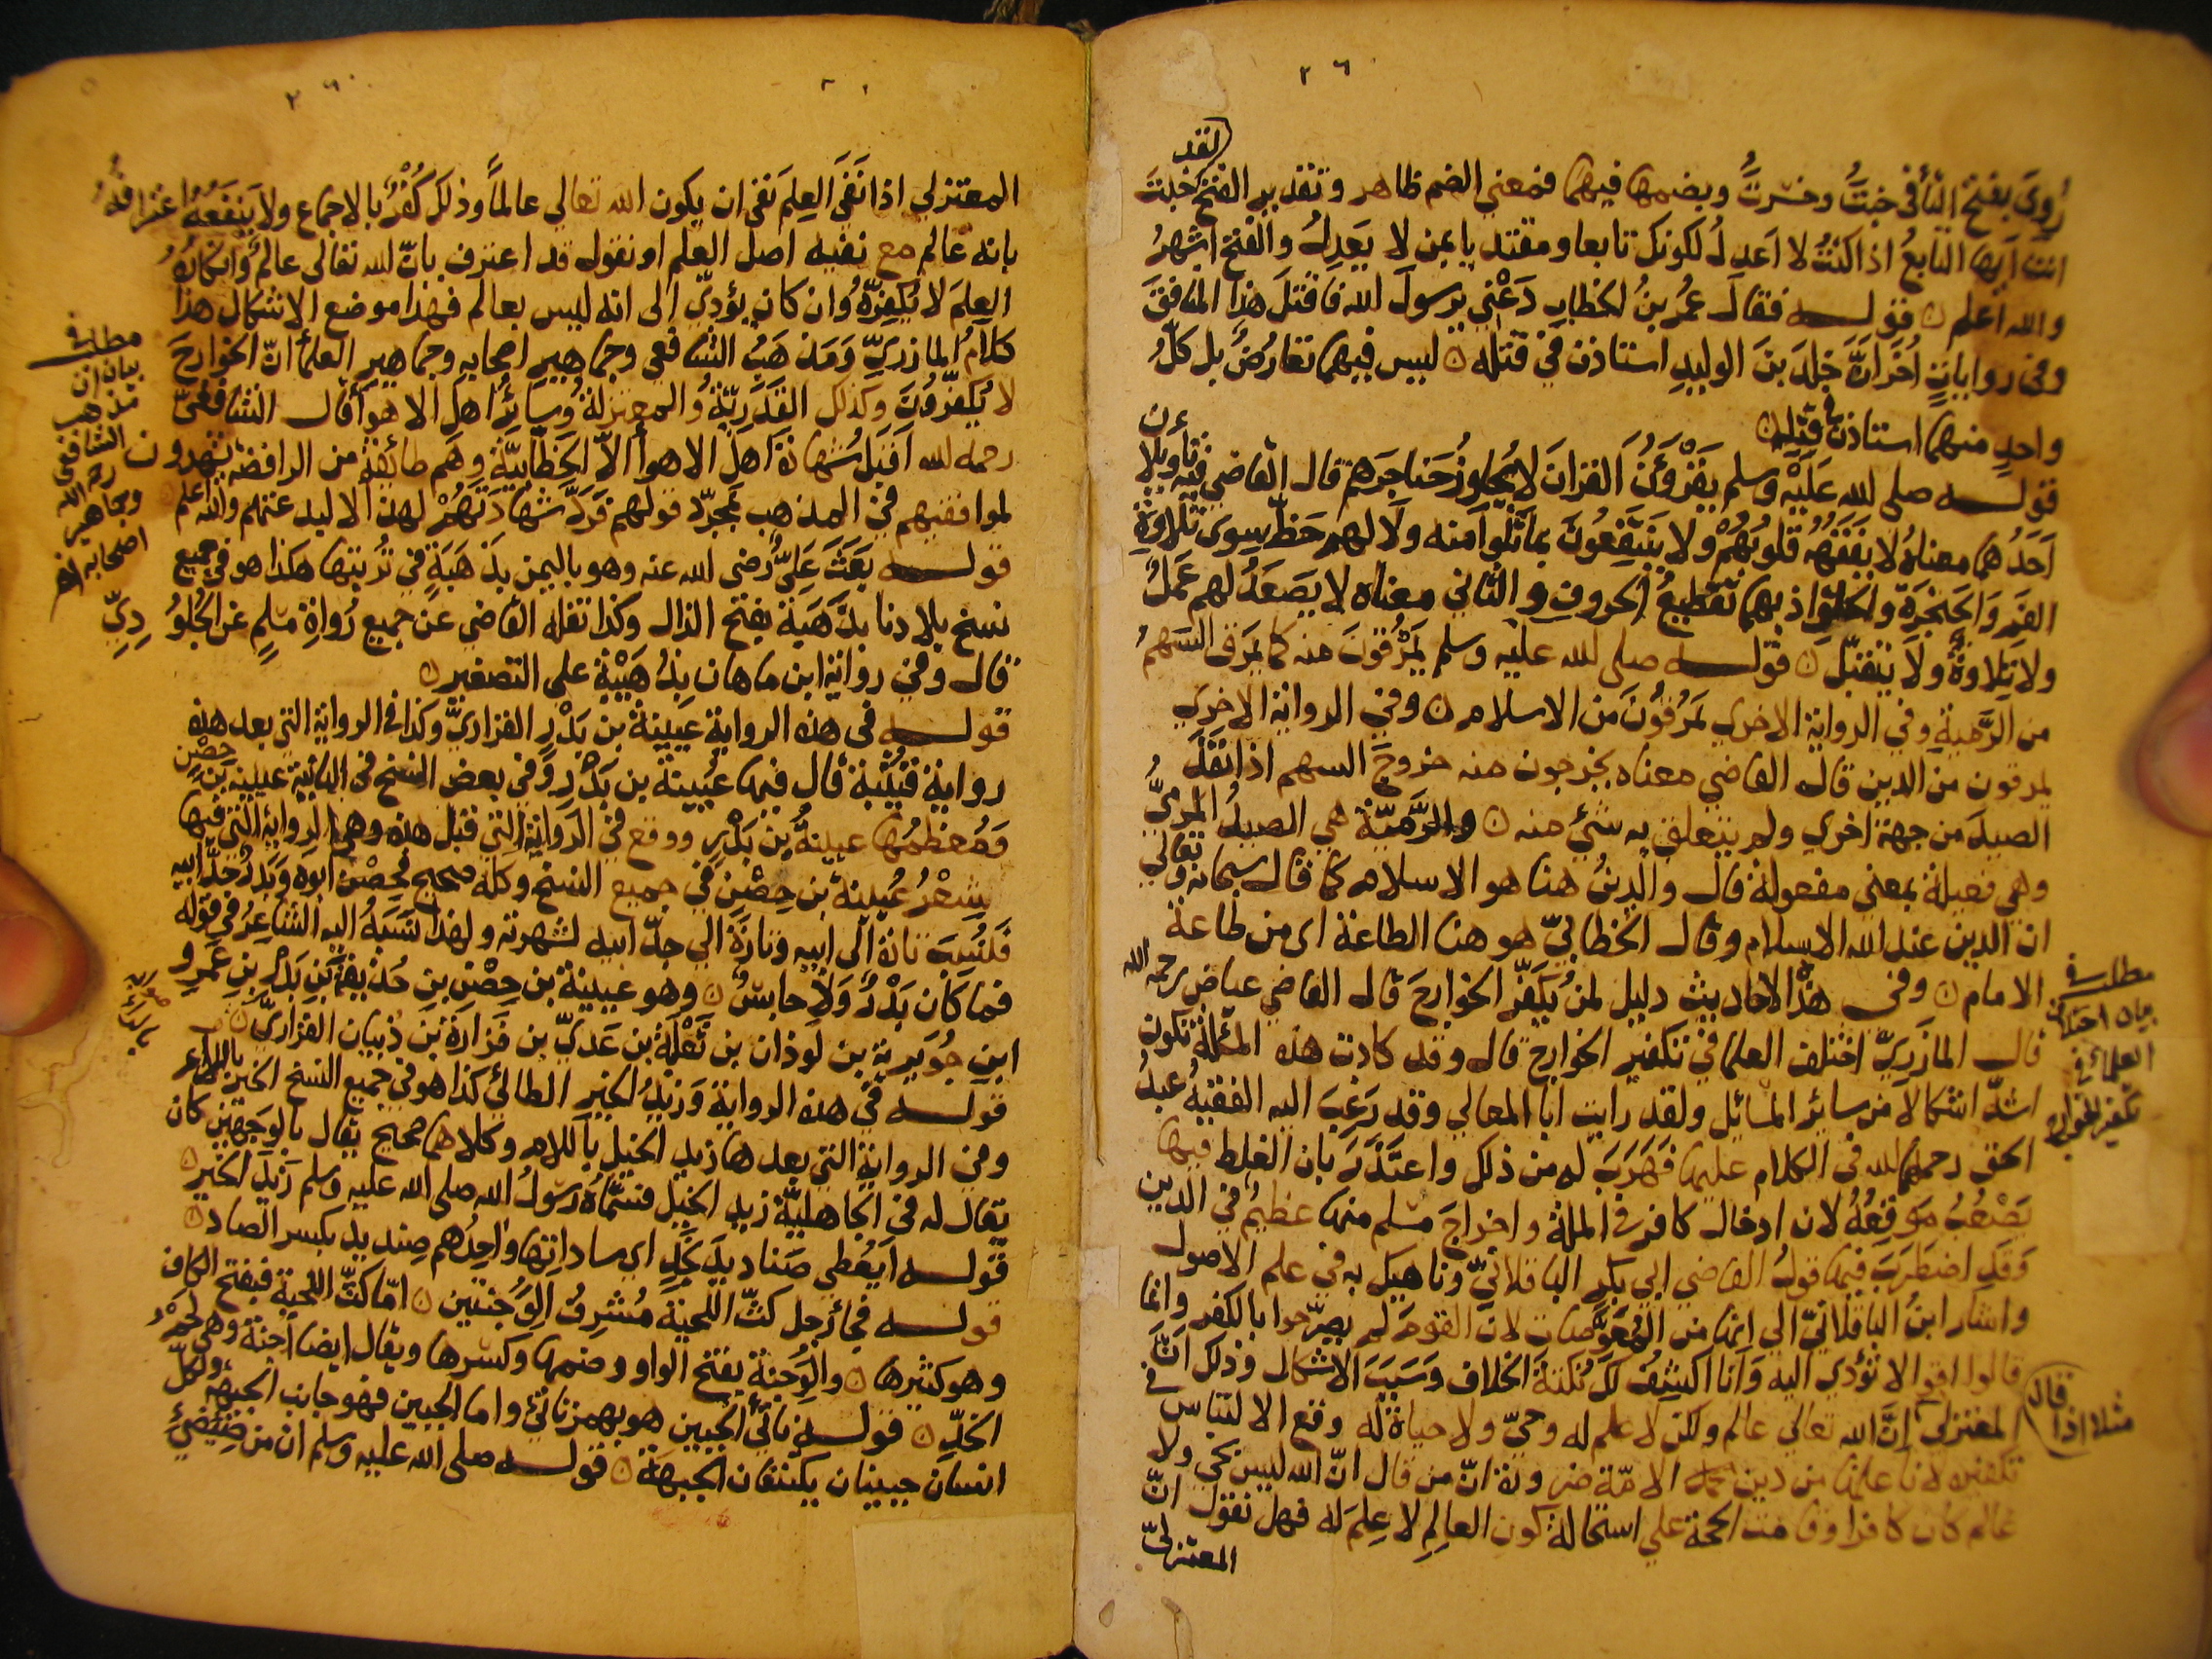 ٢٦
لقد
رُوِيَ بفتح التاء في خبتَ وخسرتَ وبضمهما فيهما فمعنى الضم ظاهر وتقدير الفتح خبتَ
انت ايها التابعُ اذا كنتُ لا اعدل لكونك تابعا ومقتديا بمن لا يعدِلُ والفتح اشهرُ
والله اعلم ٥ قوله فقال عمرُ بنُ الخطابِ دَعْني يرسولَ الله فاقتلَ هذا المنافقَ
وفي رواياتٍ أُخَرَ انَّ خلدَ بنَ الوليدِ استاذن في قتله ٥ ليس فيهما تعارُضٌ بل كلُّ
واحدٍ منهما استاذن في قتله ٥
قوله صلى الله عَلَيْه وسلم يَقْرؤُنَ القرانَ لا يُجاوِزُ حَناجرَهم قال القاضي فيه تأويلان
اَحَدُهما معناهُ لا تفقَهُه قلوبُهُمْ ولا يَنتفِعُونَ بما تَلَوا منه ولا لهم حَظّ سِوى تلاوةِ
الفَمِ وَالحَنجَرةِ والحَلْقِ اذ بهما تقطيعُ الحروفِ والثاني معناه لا يَصعَدُ لهم عَمَلٌ
ولا تِلاوةٌ ولا يُتقبّل ٥ قوله صلى الله عليه وسلم يَمْرُقونَ منه كما يمرَق السَهمُ
من الرَّمِيةِ وفي الرواية الاخرى يمرُقُونَ من الاسلام ٥ وفي الرواية الاخري
يمرقون من الدين قال القاضي معناه يخرجون منه خروجَ السهم اذا نفَذَ
الصيدَ من جهة اخري ولم يتعلق به شئ منه ٥ والرَّمِيّة هي الصيدُ المرميُّ
وهي فعيلة بمعنى مفعولة قال والدينُ هنا هو الاسلام كما قال سبحانه وتعالى
ان الدين عند الله الاسلام وقال الخطابيّ هو هنا الطاعة اى من طاعة
الامام ٥ وفى هذه الاحاديث دليل لمن يُكفّر الخوارجَ قال القاضي عياض رحمه الله
قال المازَريّ اختلف العلما في تكفير الخوارج قال وقد كادت هذه المسئلة تكون
اشدّ اشكالا من سائر المسائل ولقد رايت ابا المعالي وقد رَغِبَ اليه الفقيهُ عبدُ
الحق رحمهما الله في الكلام عليها فهَرَبَ له من ذلك واعتذَرَ بان الغلط فيها
يَصْعُبُ مَوقِعُهُ لان ادخال كافر في الملة واخراجَ مسلم منها عظيمٌ في الدين
وَقدِ اضطَرَبَ فيها قولُ القاضي ابي بكر الباقلانيّ وناهيك به في علم الاصول
واشار ابنُ الباقلانيّ الي انها من المُعَوِّصات لان القومَ لم يصرّحوا بالكفر وانما
قالوا اقوالا تؤدي اليه وَانا اكشِفُ لكَ نُكتةَ الخلاف وَسَبَبَ الاشكال وذلك انَّ
المعتزلىّ إنَّ الله تعالي عالم ولكن لا علم له وحيّ ولا حياة له وقع الالتباس في
تكفيره لانا علمنا من دين الامّة ضرورة انّ من قال انّ الله ليس بحي ولا
عالم كان كافرا وقامت الحجة علي استحالة كون العالِمِ لا عِلمَ له فهل نقول انّ
المعتزلىّ
مطلب في
بيان اختلاف
العلماء في
تكفير الخوارج
مثلا اذا قال
٢٦
المعتزلي اذا نَفَى العِلمَ نفى ان يكون الله تعالي عالماً وذلك كُفْرٌ بالاجماع ولا يَنفَعُهُ اعترافُهُ
بانه عالم مع نفيه اصل العلم او نقول قد اعترف بانّ الله تعالى عالمٌ وانكارُهُ
العِلمَ لا يُكفِّرُهُ وان كان يؤدّي الى انه ليس بعالم فهذا موضع الاشكال هذا
كلامُ المازريِّ وَمَذهَبُ الشافعي وجماهيرِ اصحابه وجماهيرِ العلماء انّ الخوارجَ
لا يُكفَّرُونَ وكذلك القَدَرِيّةُ والمعتزلةُ وسائِرُ اهل الاهواء قال الشافعيّ
رحمه الله اَقبَلُ شهادةَ اهل الاهواء الاّ الخَطّابِيّةَ وهم طائفة من الرافضة يشهدون
لموافقيهم في المذهب بمجرّد قولهم فرَدَّ شهادَتَهُمْ لهذا لا لبدعتهم والله اعلم ٥
قوله بَعَثَ عَليٌّ رضى الله عنه وهو باليمن بذهَبَةٍ في تُربَتها هكذا هو في جميع
نسخ بلادنا بذَهَبَة بفتح الذال وكذا نقله القاضي عن جميع رُواةِ مسلمٍ عن الجُلُودِيِّ
قال وفي رواية ابن ماهان بذُهَيْبةٍ على التصغير ٥
قوله فى هذه الرواية عيينةُ بن بَدْرٍ الفزاريّ وكذا في الرواية التي بعد هذه
رواية قُتَيْبة قال فيها عُيينة بن بَدْرٍ وفى بعض النسخ في الثانية عيينة بن حِصْن
وَمُعظمُها عيينةُ بن بَدْرٍ ووقع في الرواية التي قبل هذه وهى الرواية التي فيها
الشِعْرُ عُيينةُ بن حِصْنٍ في جميع النسخ وكله صحيح فحِصْن ابوه وَبَدرُ جدُّ ابيه
فنُسِبَ تارة الى ابيه وتارةً الي جدّ ابيه لشهرته ولهذا نَسَبَهُ اليه الشاعرُ في قوله
فما كان بَدْرٌ ولا حابسٌ ٥ وهو عيينة بن حِصْنِ بنِ حُذيفةَ بْنِ بَدْرِ بنِ عَمرِو
ابنِ جُوَيرية بن لوذان بن ثعْلَبَة بن عَديّ بن فَزارَةَ بن ذُبيان الفزاريّ ٥
قوله في هذه الرواية وَزَيدُ الخير الطائي كذا هو في جميع النسخ الخير بالراء
وفي الرواية التي بعدها زيد الخيل باللام وكلاهما صحيح يقال بالوجهين كان
يقال له في الجاهليّة زيد الخيل فسَمّاه رَسُولُ الله صلى الله عليه وسلم زَيدَ الخير ٥
قوله اَيُعْطي صَناديدَ نَجْدٍ اي ساداتِها واحِدُهم صِنديد بكسر الصاد ٥
قوله فجاء رجل كثّ اللحية مُشْرِفُ الوَجنتين ٥ امّا كثّ اللحية فبفتح الكاف
وهو كثيرها ٥ والوَجنةُ بفتح الواو وضمها وكسرها ويقال ايضا اُجنة وهى لحم
الخدِّ ٥ قوله ناتئ الجبين هو بهمز ناتئ واما الجبين فهو جانب الجبهة ولكل
انسان جبينان يكتنفان الجبهة ٥ قوله صلى الله عليه وسلم ان من ضِئضئِ
مطلب في
بيان ان
مذهب
الشافعى
رحمه الله
وجماهير
اصحابه